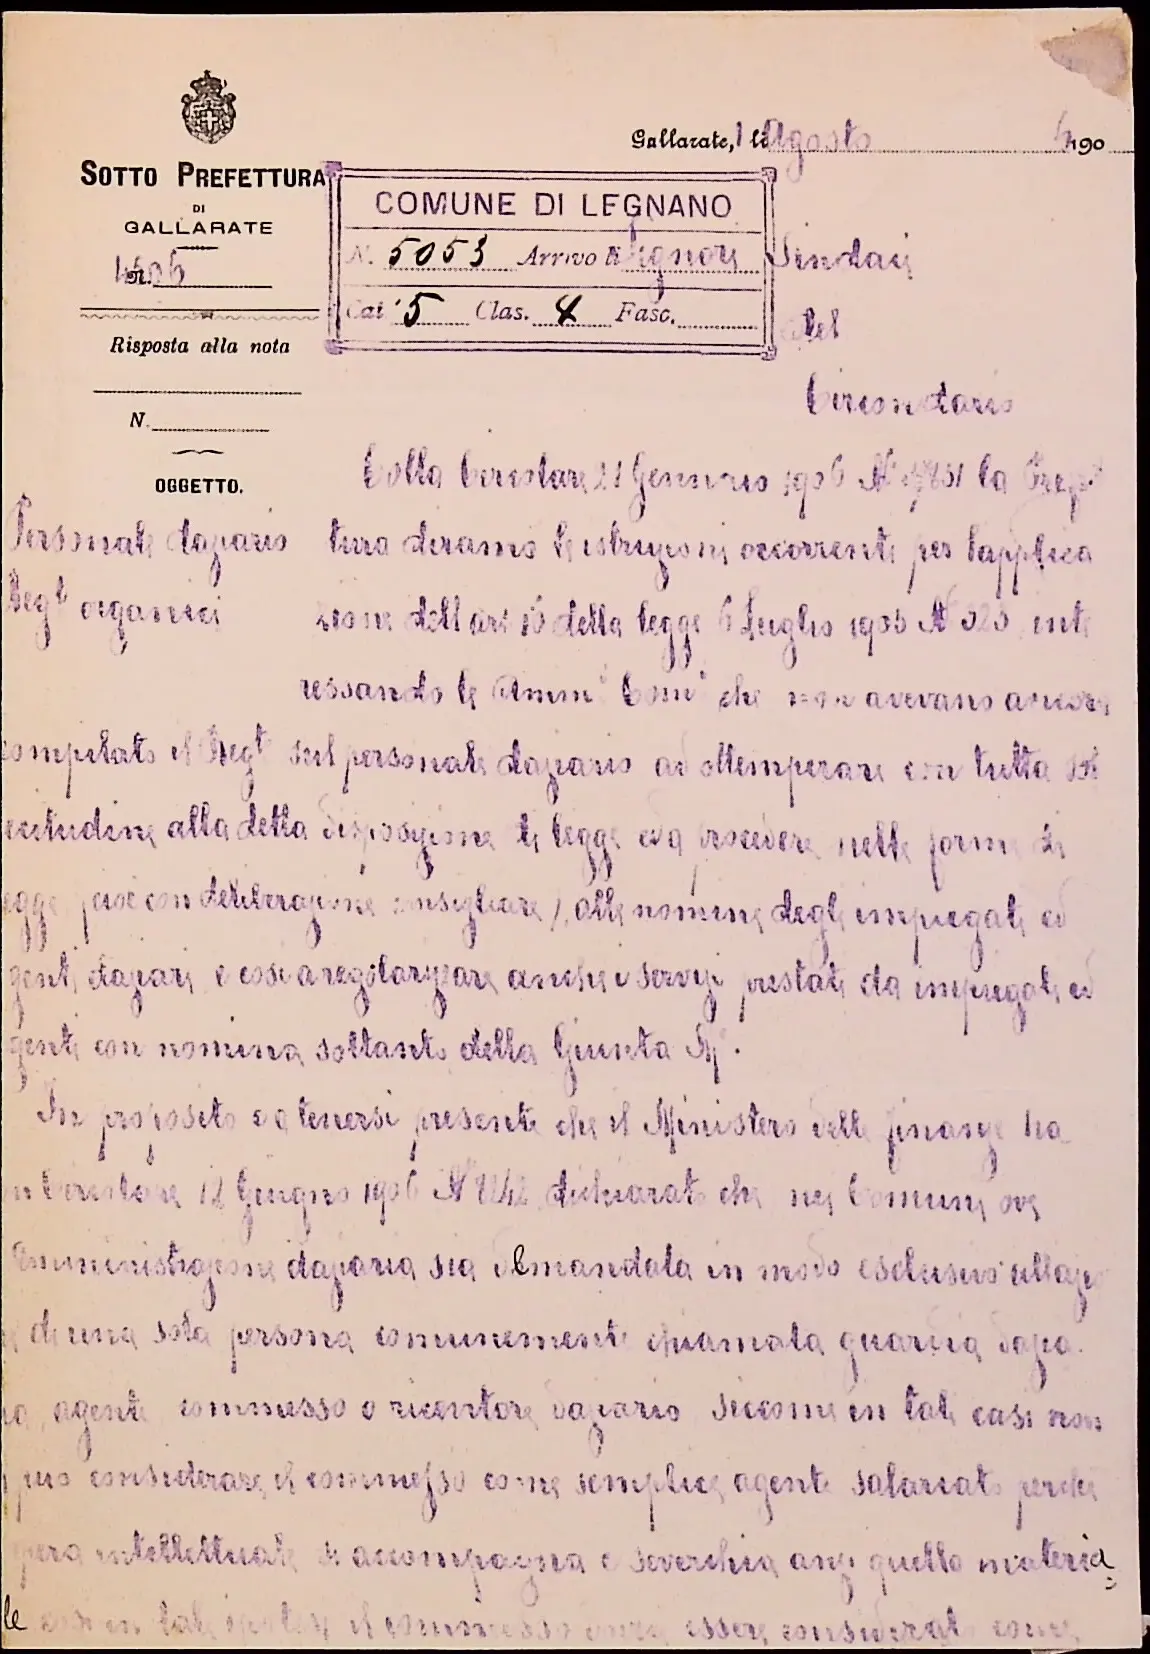 Gallarate, li 1 Agosto 1906
SOTTO PREFETTURA
DI
GALLARATE
N.
Risposta alla nota
N.
OGGETTO.
Personale daziario
Regti organici
COMUNE DI LEGNANO
N. 5053 Arrivo li
Cat. 5 Clas. 4 Fasc.
Signori Sindaci
del
Circondario
Colla Circolare 21 Gennaio 1906 N. la Prefet
tura diramò le istruzioni occorrenti per l'applica
zione dell'art. della legge 6 Luglio 1905 N 323, inte
ressando le Ammi Comi che non avevano ancora
compilato il Regto sul personale daziario ad ottemperare con tutta sol
lecitudine alla detta disposizione di legge ed a procedere nelle forme di
legge (cioè con deliberazione consigliare), alle nomine degli impiegati ed
agenti daziari e così a regolarizzare anche i servizi prestati da impiegati ed
agenti con nomina soltanto della Giunta Mle.
In proposito è a tenersi presente che il Ministero delle finanze ha
con Circolare 12 Giugno 1906 N dichiarato che nei Comuni ove
Amministrazione daziaria sia demandata in modo esclusivo all'azio
ne di una sola persona comunemente chiamata guardia dazia
ria, agente commesso o ricevitore daziario siccome in tali casi non
si può considerare il commesso come semplice agente salariato perchè
opera intellettuale si accompagna e soverchia anzi quello materia
le così in tale ipotesi il commesso dovrà essere considerato come